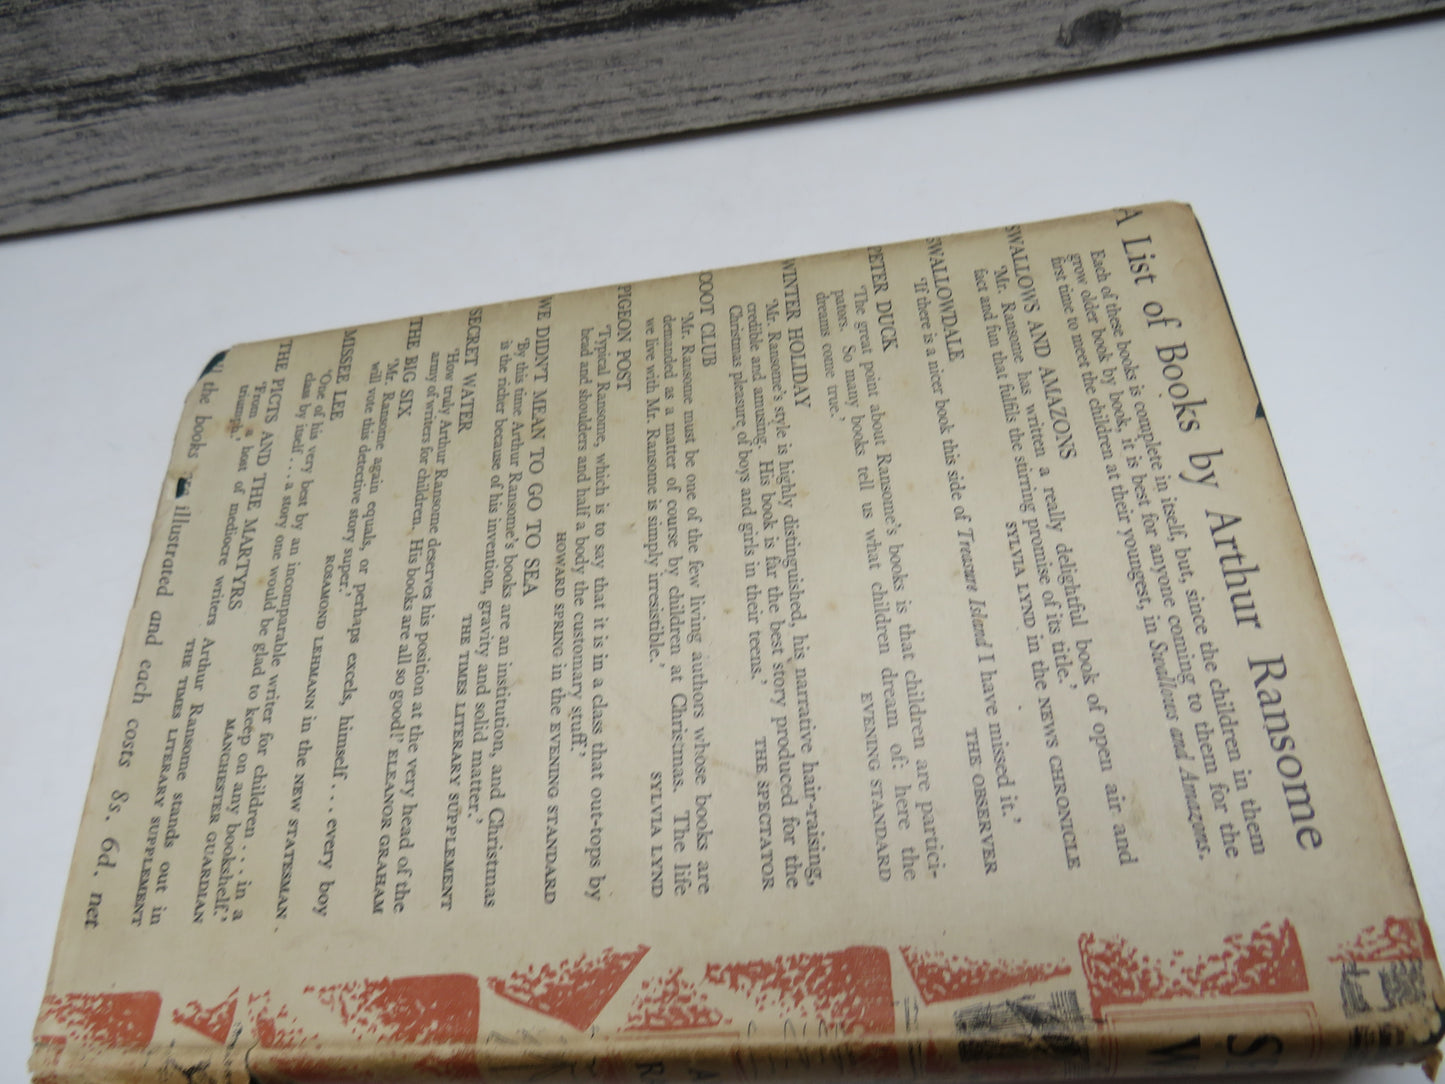 A List of Books by Arthur Ransome
Each of these books is complete in itself, but, since the children in them
grow older book by book, it is best for anyone coming to them for the
first time to meet the children at their youngest, in Swallows and Amazons.
SWALLOWS AND AMAZONS
'Mr. Ransome has written a really delightful book of open air and
fact and fun that fulfils the stirring promise of its title.'
SYLVIA LYND in the NEWS CHRONICLE
SWALLOWDALE
'If there is a nicer book this side of Treasure Island I have missed it.'
THE OBSERVER
PETER DUCK
'The great point about Ransome's books is that children are partici-
pators. So many books tell us what children dream of: here the
dreams come true.'
EVENING STANDARD
WINTER HOLIDAY
'Mr. Ransome's style is highly distinguished, his narrative hair-raising,
credible and amusing. His book is far the best story produced for the
Christmas pleasure of boys and girls in their teens.'
THE SPECTATOR
COOT CLUB
'Mr. Ransome must be one of the few living authors whose books are
demanded as a matter of course by children at Christmas. The life
we live with Mr. Ransome is simply irresistible.'
SYLVIA LYND
PIGEON POST
'Typical Ransome, which is to say that it is in a class that out-tops by
head and shoulders and half a body the customary stuff.'
HOWARD SPRING in the EVENING STANDARD
WE DIDN'T MEAN TO GO TO SEA
'By this time Arthur Ransome's books are an institution, and Christmas
is the richer because of his invention, gravity and solid matter.'
THE TIMES LITERARY SUPPLEMENT
SECRET WATER
'How truly Arthur Ransome deserves his position at the very head of the
army of writers for children. His books are all so good!' ELEANOR GRAHAM
THE BIG SIX
'Mr. Ransome again equals, or perhaps excels, himself . . . every boy
will vote this detective story super.'
ROSAMOND LEHMANN in the NEW STATESMAN
MISSEE LEE
'One of his very best by an incomparable writer for children . . . in a
class by itself . . . a story one would be glad to keep on any bookshelf.'
MANCHESTER GUARDIAN
THE PICTS AND THE MARTYRS
'From a host of mediocre writers Arthur Ransome stands out in
triumph.'
THE TIMES LITERARY SUPPLEMENT
the books are illustrated and each costs 8s. 6d. net